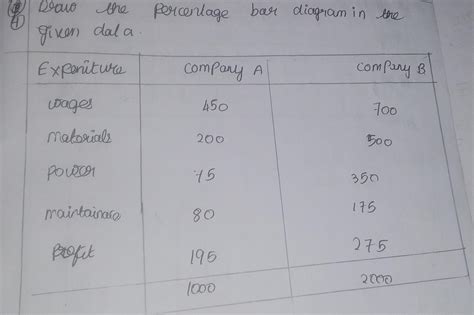 Draw the percentage bar diagram in the
given data.
Expeniture Company A Company B
wages 450 700
materials 200 500
power 75 350
maintainace 80 175
profit 195 275
1000 2000